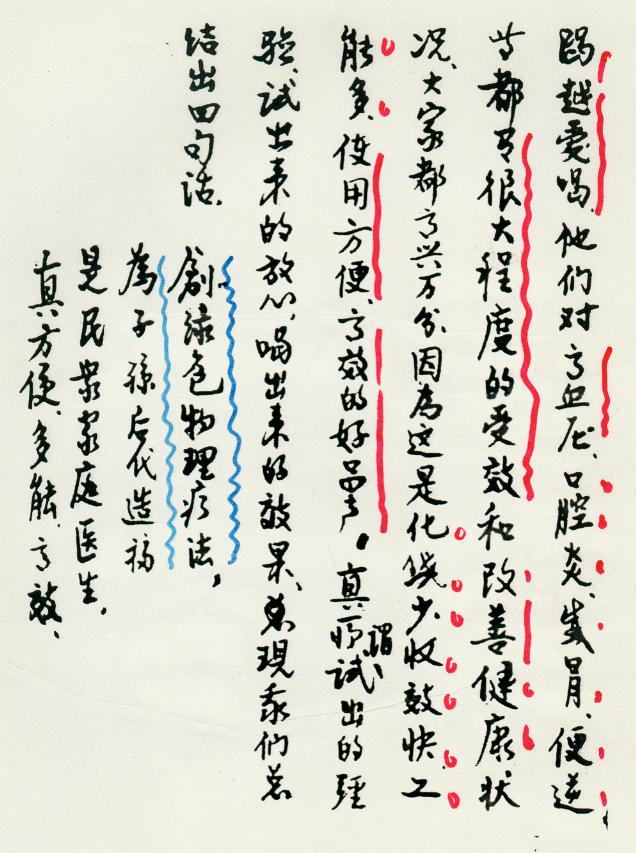 喝越爱喝，他们对高血压、口腔炎、感冒、便逆
等都有很大程度的受效和改善健康状
况、大家都高兴万分因為这是化饶少收效快工
能多、使用方便、高效的好品，真所謂試出的經
验、試出来的放心，喝出来的效果、兑現我们总
结出四句話、
創綠色物理疗法，
為子孫后代造福
是民衆家庭医生，
真方便、多能、高效、